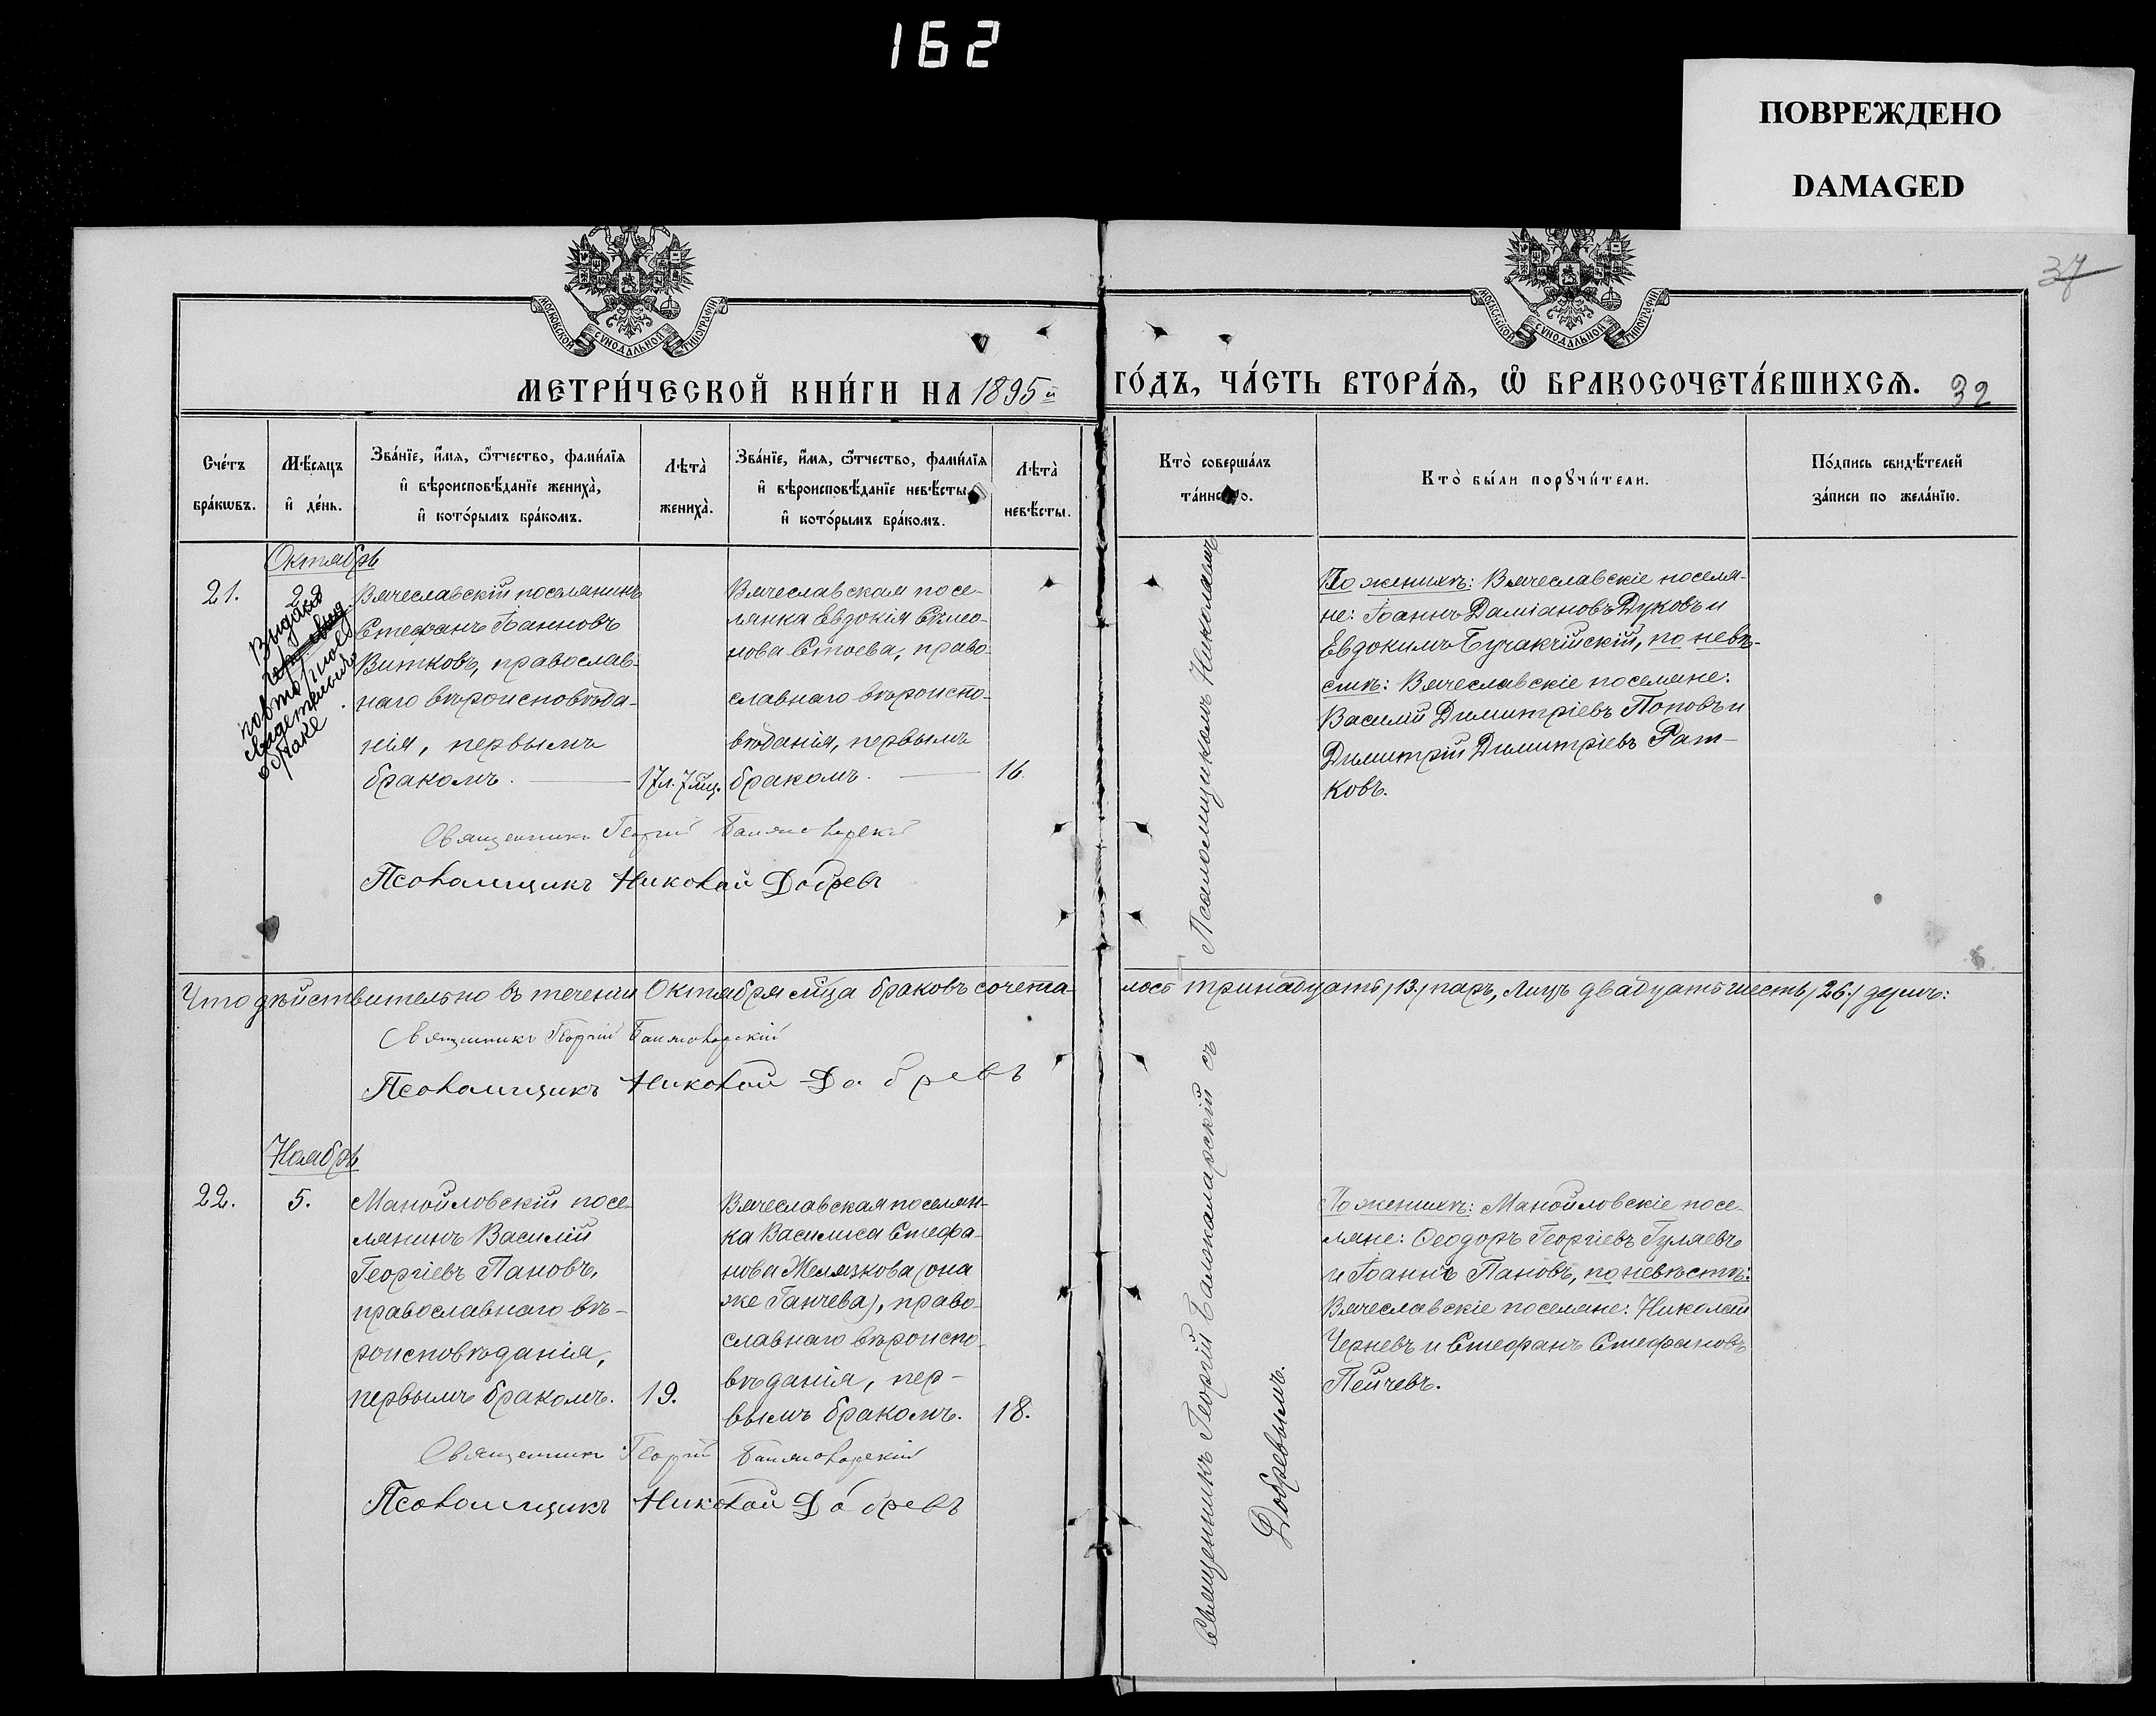 162
ПОВРЕЖДЕНО
DAMAGED
37
МОСКОВСКОЙ СѴНОДАЛЬНОЙ ТИПОГРАФІИ
МОСКОВСКОЙ СѴНОДАЛЬНОЙ ТИПОГРАФІИ
МЕТРИ́ЧЕСКОЙ КНИ́ГИ НА 1895й ГО́ДЪ, ЧА́СТЬ ВТОРА́Я, Ѽ БРАКОСОЧЕТА́ВШИХСЯ. 32
Сче́тъ бра́кѡвъ.
Мѣ́сяцъ и҆ де́нь.
Зва́нїе, и҆́мя, ѻ҆́тчество, фами́лїя
и҆ вѣроисповѣ́данїе жениха̀,
и҆ кото́рымъ бра́комъ.
Лѣта̀ жениха̀.
Зва́нїе, и҆́мя, ѻ҆́тчество, фами́лїя
и҆ вѣроисповѣ́данїе невѣ́сты,
и҆ кото́рымъ бра́комъ.
Лѣта̀ невѣ́сты.
Кто̀ соверша́лъ
та́инство.
Кто̀ бы́ли порꙋчи́тели.
По́дпись свидѣ́телей
за́писи по жела́нїю.
Октябрь
21.
Выдано
повторное
свидетельство
о браке
Вячеславскій поселянинъ
Стефанъ Іоанновъ
Витковъ, православ-
наго вѣроисповѣда-
нія, первымъ
бракомъ.
17 л. 7 мц.
Вячеславская посе-
лянка Евдокія Симо-
нова Стоева, право-
славнаго вѣроиспо-
вѣданія, первымъ
бракомъ.
16.
По женихѣ: Вячеславскіе поселя-
не: Іоаннъ Даміановъ Дуковъ и
Евдокимъ Бучакчійскій, по невѣ-
стѣ: Вячеславскіе поселяне:
Василій Димитріевъ Поповъ и
Димитрій Димитріевъ Рат-
ковъ.
Священникъ Георгій
Псаломщикъ Николай Добревъ
Что дѣйствительно въ теченіи Октября мѣца браковъ сочета-
лось тринадцать /13./ паръ, лицъ двадцать шесть /26./ душъ:
Священникъ Георгій
Псаломщикъ Николай Добревъ
Ноябрь
22.
5.
Манойловскій посе-
лянинъ Василій
Георгіевъ Пановъ,
православнаго вѣ-
роисповѣданія,
первымъ бракомъ.
19.
Вячеславская поселян-
ка Василиса Стефа-
нова Желязкова (она
же Ганчева), право-
славнаго вѣроиспо-
вѣданія, пер-
вымъ бракомъ.
18.
По женихѣ: Манойловскіе посе-
ляне: Ѳеодоръ Георгіевъ Гуляевъ
и Іоаннъ Пановъ, по невѣстѣ:
Вячеславскіе поселяне: Николай
Черневъ и Стефанъ Стефановъ
Пейчевъ.
Священникъ Георгій
Псаломщикъ Николай Добревъ
Священникъ Георгій съ Псаломщикомъ Николаемъ
Добревымъ.